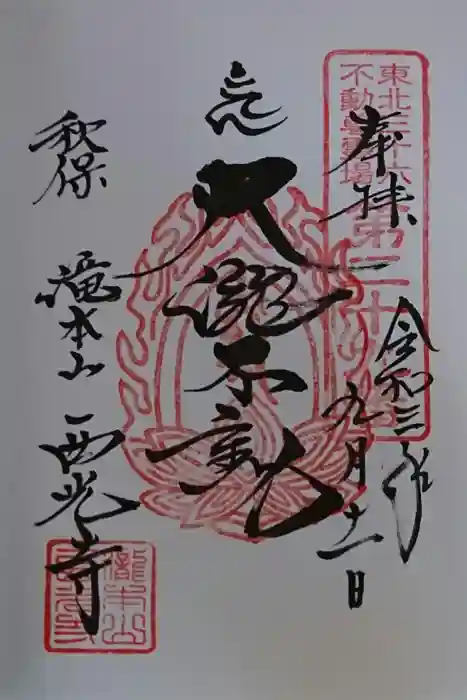 東北三十六
不動尊霊場
第二十
奉拝
令和三年
九月十一日
大滝不動
秋保
滝本山
西光寺